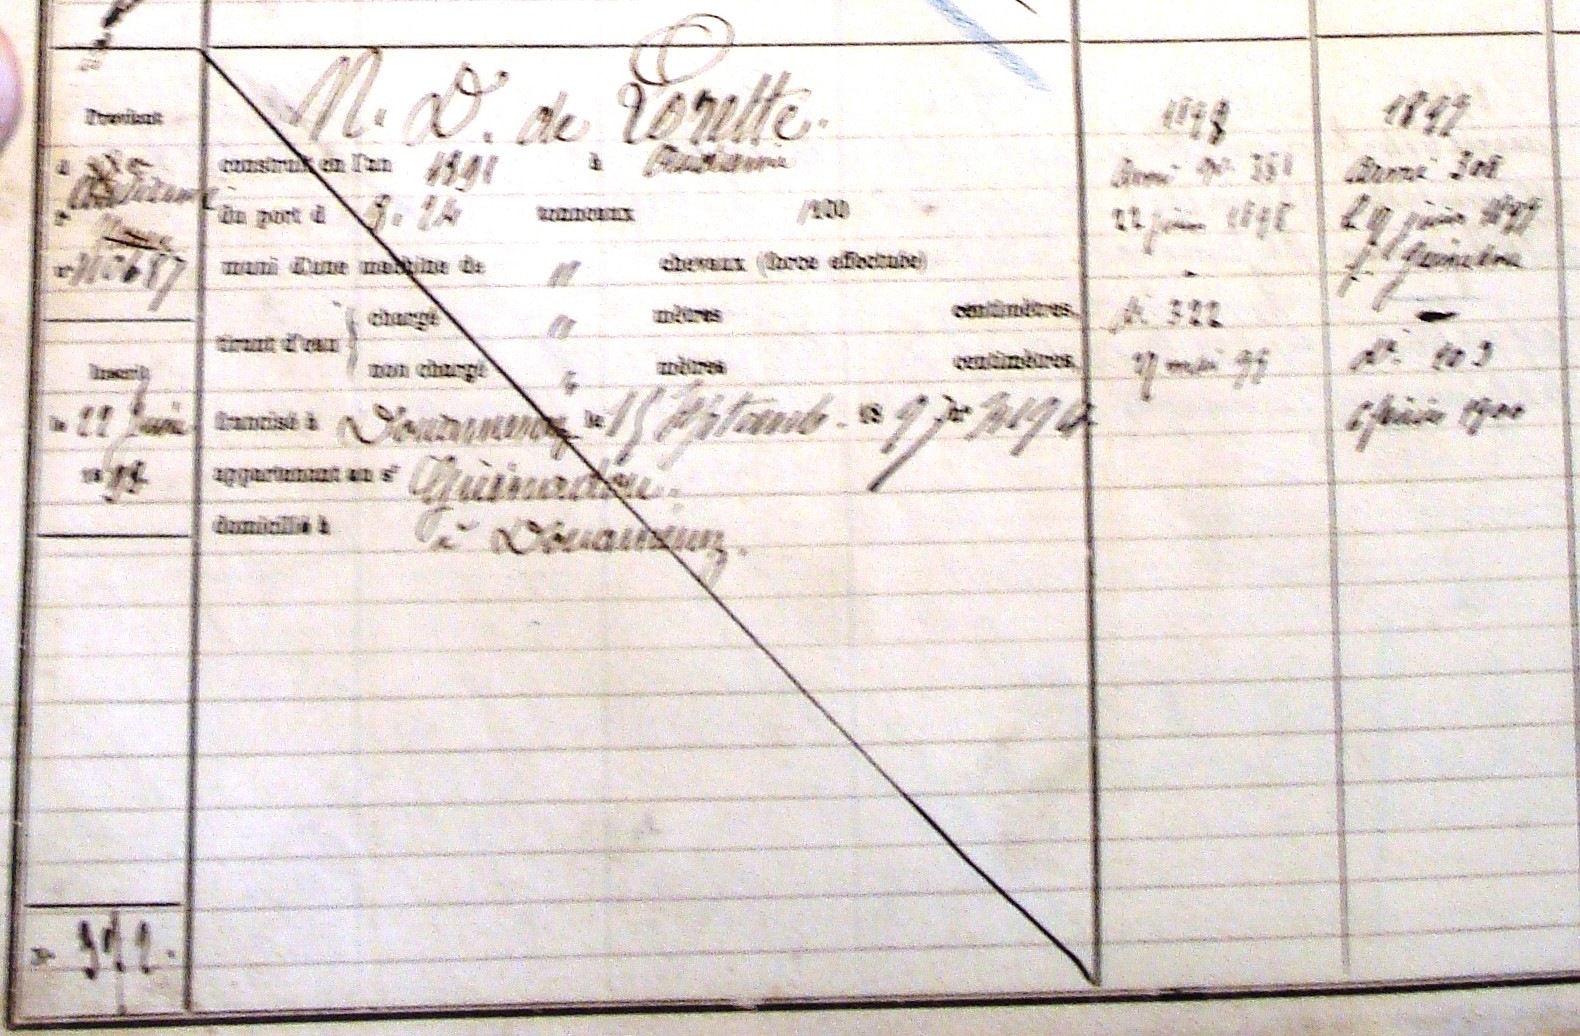 Provenant
à
Audierne
f°
n° 10687
Inscrit
le 22 Juin
1898
N. D. de Lorette.
construit en l'an 1891 à Audierne
du port d 9. 24 tonneaux /100
muni d'une machine de " chevaux (force effectuée)
tirant d'eau
chargé " mètres centimètres.
non chargé " mètres centimètres.
francisé à Douarnenez le 15 Septemb. 1897
appartenant au s^r Guinadou.
domicilié à à Douarnenez.
1898
Armé n°
22 juin 1898
d. 322
27 mai 99
1899
Armé 308
le 19 juin 1899
D°. 203
6 juin 1900
n° 372.